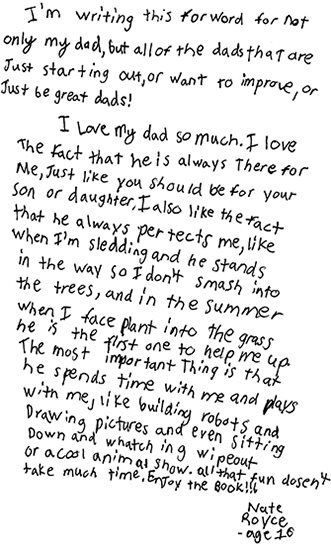 I'm writing this forword for not
only my dad, but all of the dads that are
Just starting out, or want to improve, or
Just be great dads!
I Love my dad so much. I love
The fact that he is always There for
Me, Just like you should be for your
son or daughter. I also like the fact
that he always pertects me, like
when I'm sledding and he stands
in the way so I don't smash into
the trees, and in the summer
when I face plant into the grass
he is the first one to help me up.
The most important Thing is that
he spends time with me and plays
with me, like building robots and
Drawing pictures and even sitting
Down and whatching wipeout
or a cool animal show. all that fun dosen't
take much time. Enjoy the Book!!!
Nate
Royce
-age 10